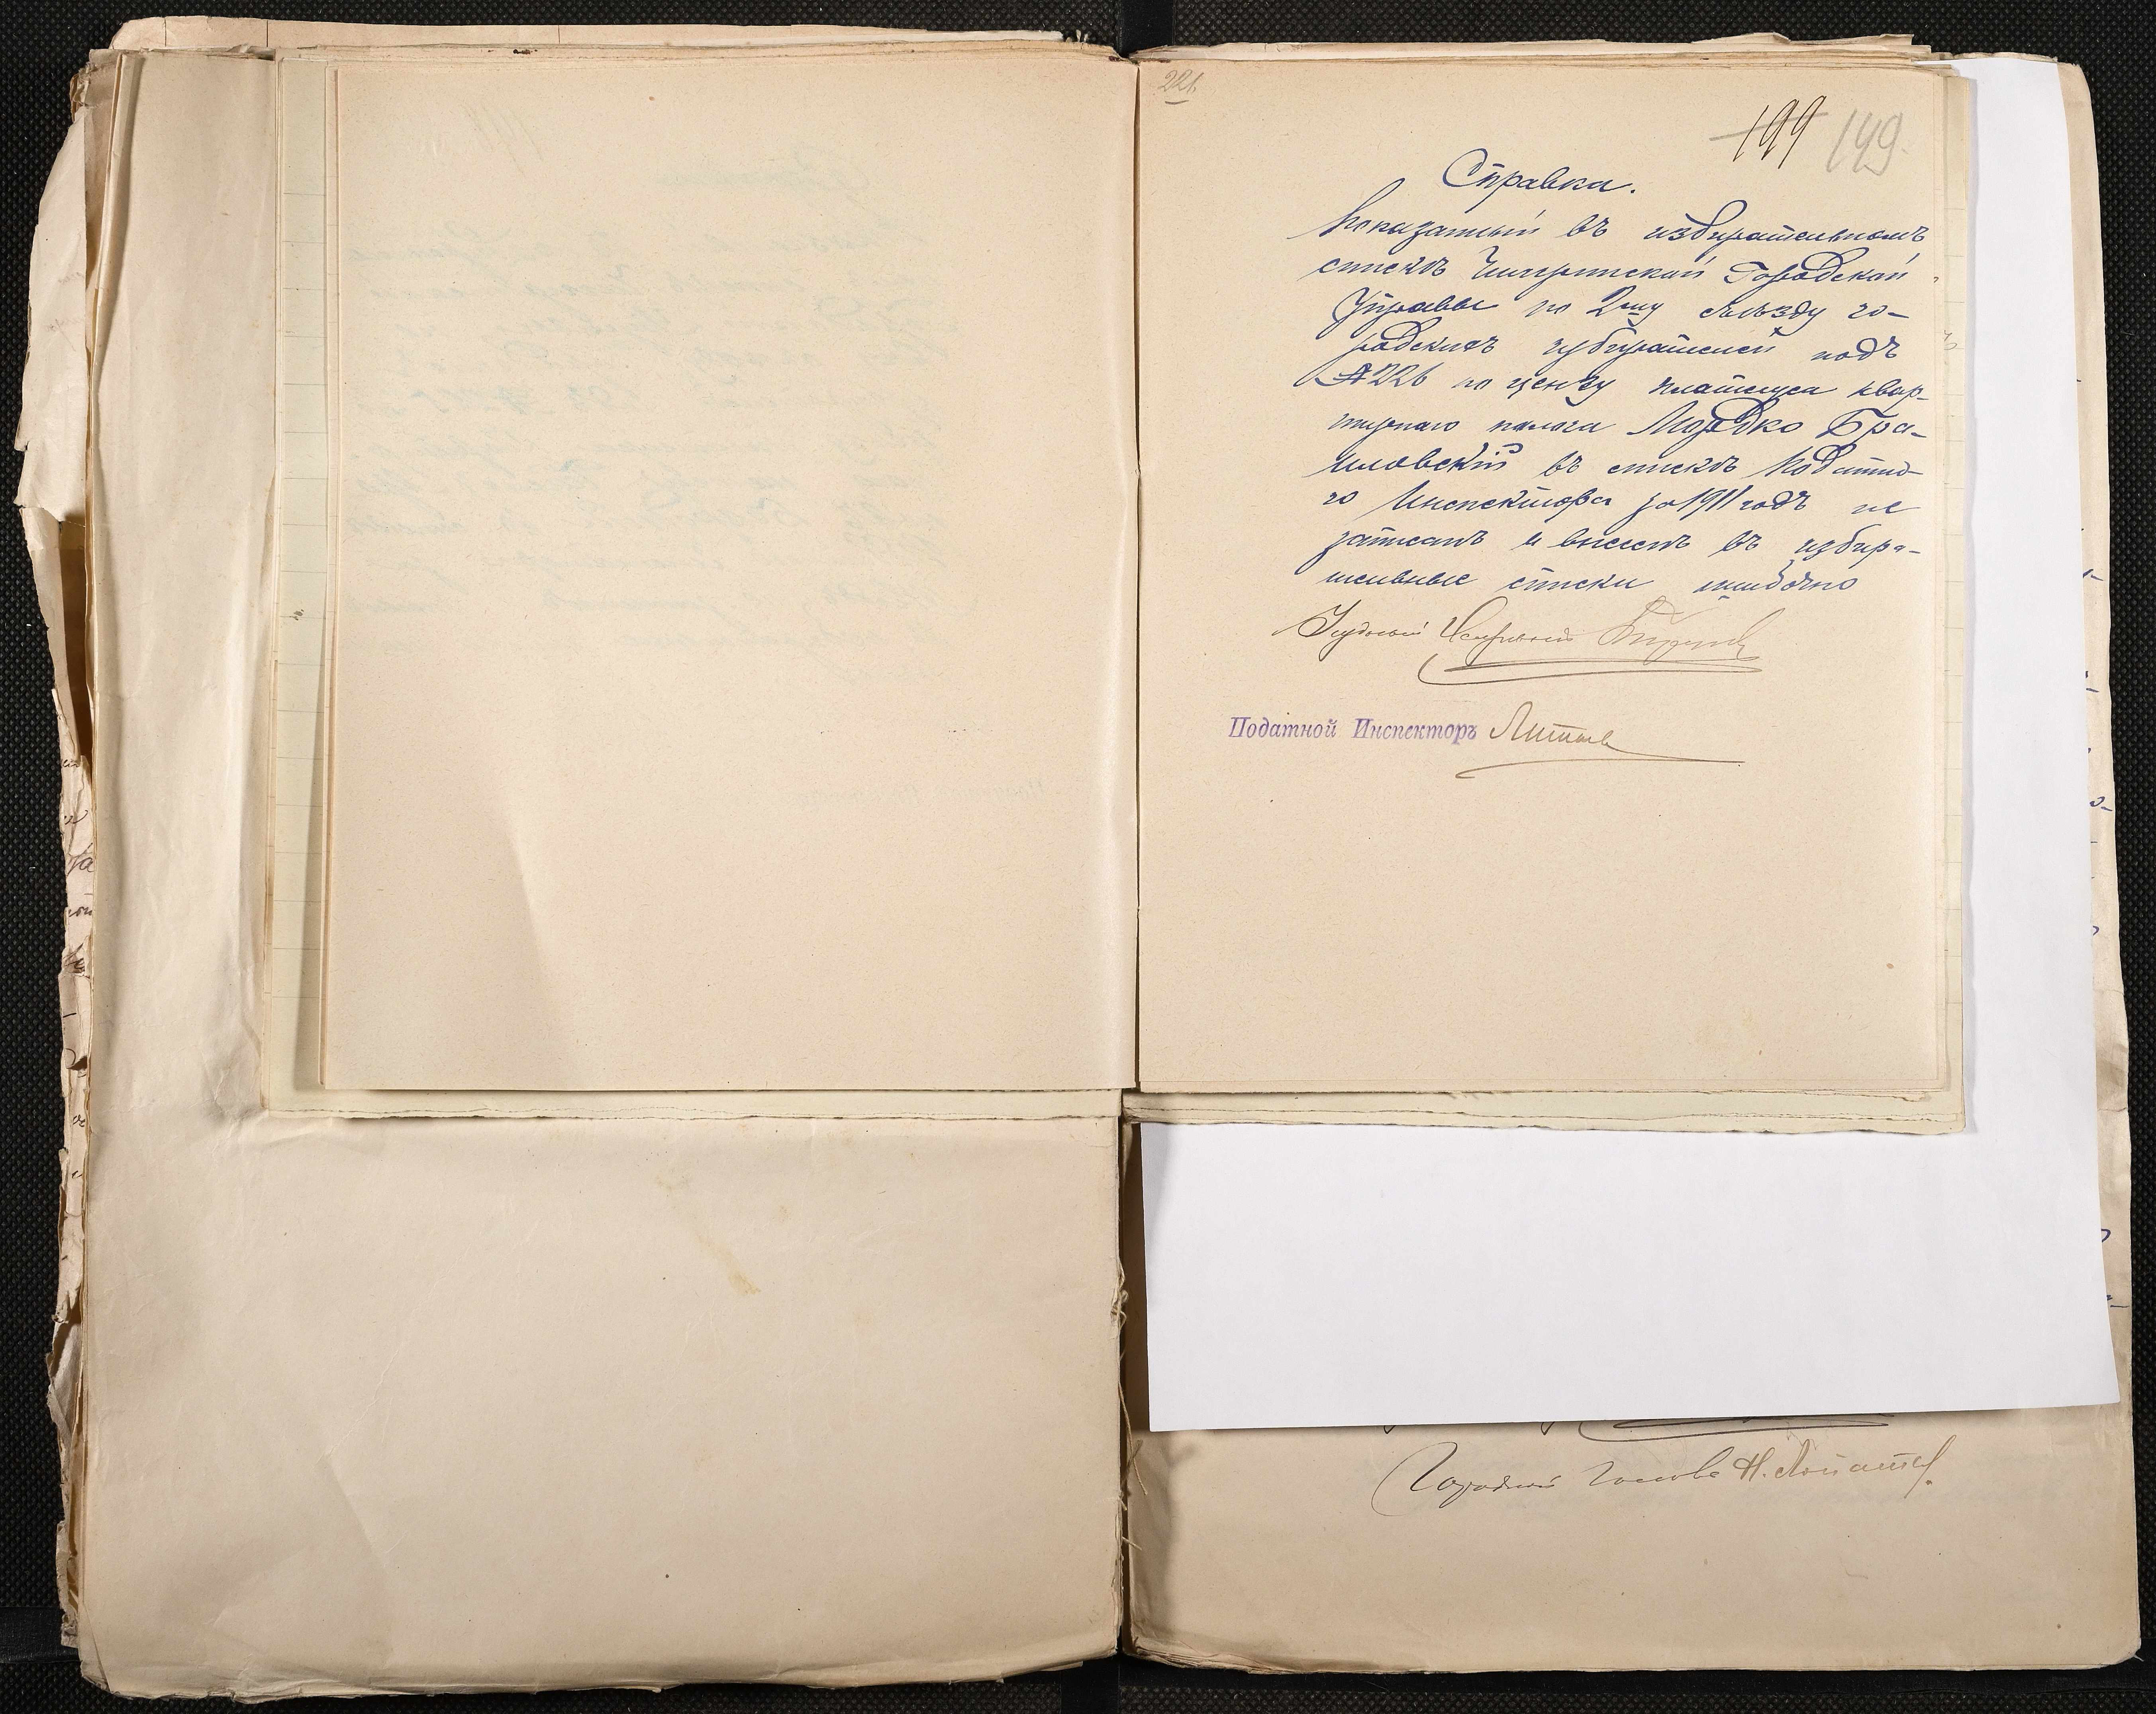 221.
199 149.
Справка.
Показанный въ избирательномъ
списке Чигиринской Городской
Управы по 2му съѣзду го-
родскихъ избирателей подъ
№ 226 по цензу платежа квар-
тирнаго налога Мордко Бра-
иловскій въ спискѣ Податно-
го Инспектора за 1911 годъ не
записанъ и внесенъ въ избира-
тельные списки ошибочно
Податной Инспекторъ
Городской Голова Н.